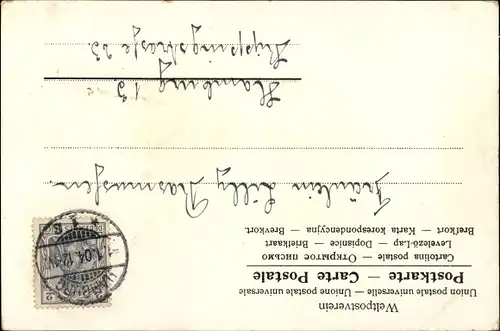 Weltpostverein
Union postale universelle — Unione postale universale
Postkarte — Carte Postale
Cartolina postale — Открытое письмо
Levelező-Lap — Dopisnice — Briefkaart
Brefkort — Karta korespondencyjna — Brevkort.
Fräulein Lilly Rasmussen
Hamburg 13.
Rippingstrasse 23.
HAMBURG
1.04.12
* 1 *